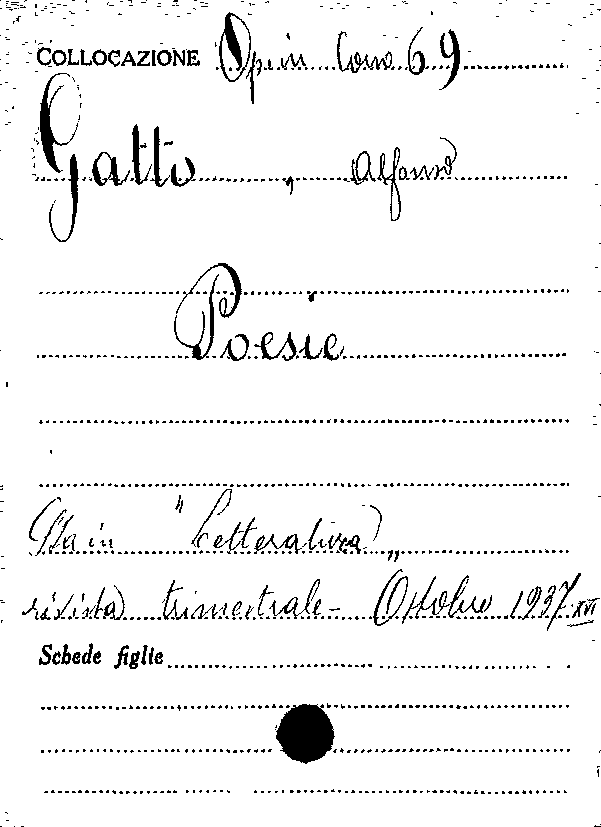 COLLOCAZIONE Op. in Corso 69
Gatto, Alfonso
Poesie
Sta in "Letteratura"
rivista trimestrale - Ottobre 1937. XVI
Schede figlie